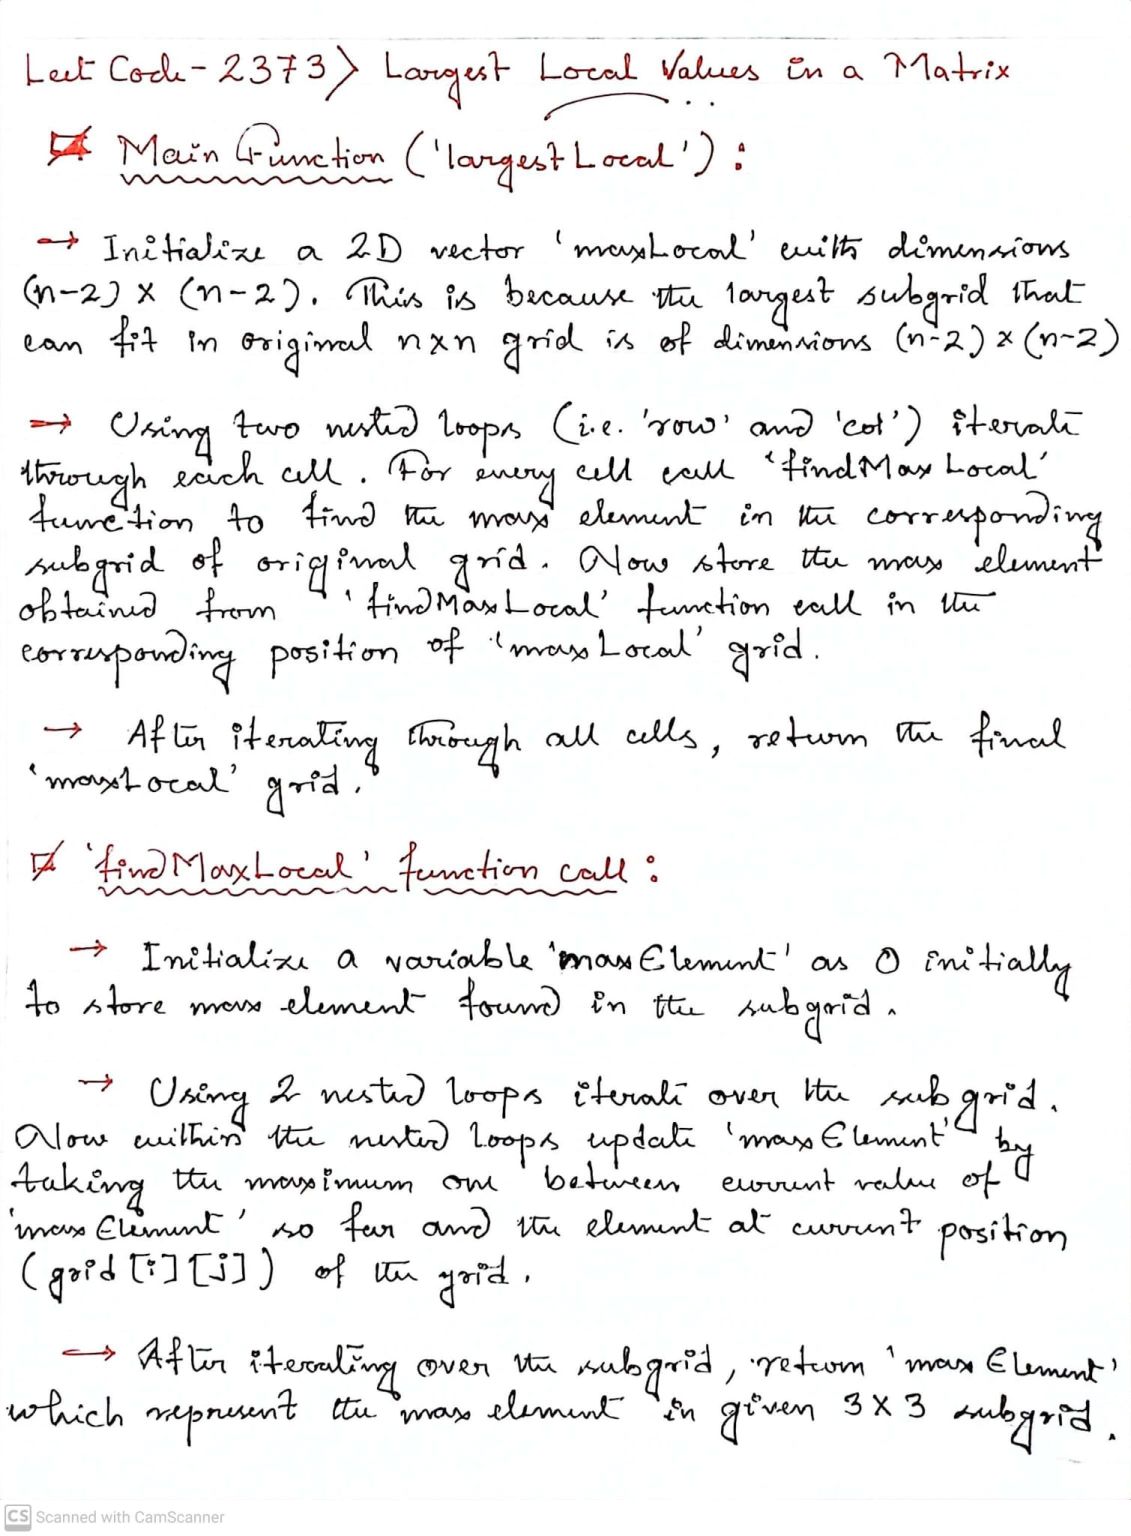 Leet Code - 2373> Largest Local Values in a Matrix
Main Function ('largestLocal') :
→ Initialize a 2D vector 'maxLocal' with dimensions
(n-2) x (n-2). This is because the largest subgrid that
can fit in original nxn grid is of dimensions (n-2) x (n-2)
→ Using two nested loops (i.e. 'row' and 'col') iterate
through each cell. For every cell call 'findMaxLocal'
function to find the max element in the corresponding
subgrid of original grid. Now store the max element
obtained from 'findMaxLocal' function call in the
corresponding position of 'maxLocal' grid.
→ After iterating through all cells, return the final
'maxLocal' grid.
'findMaxLocal' function call :
→ Initialize a variable 'maxElement' as 0 initially
to store max element found in the subgrid.
→ Using 2 nested loops iterate over the subgrid.
Now within the nested loops update 'maxElement' by
taking the maximum one between current value of
'maxElement' so far and the element at current position
(grid[i][j]) of the grid.
→ After iterating over the subgrid, return 'maxElement'
which represent the max element in given 3X3 subgrid.
CS Scanned with CamScanner